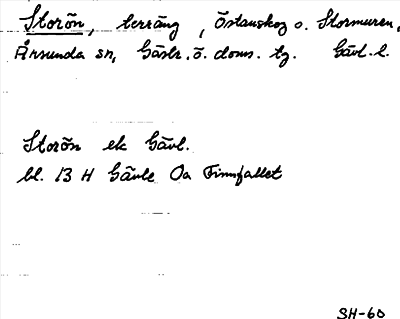 Storön, terräng, Östanskog o. Stormuren,
Årsunda sn, Gästr. ö. doms. tg. Gävl. l.
Storön ek Gävl.
bl. 13 H Gävle 0a Finnfallet
SH-60